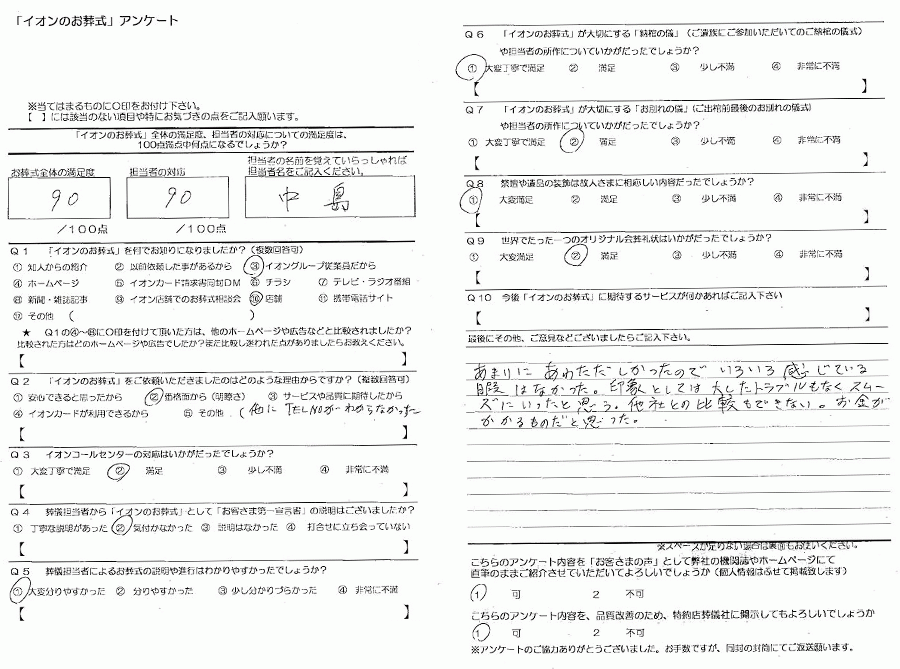 「イオンのお葬式」アンケート
※当てはまるものに○印をお付け下さい。
【 】には該当のない項目や特にお気づきの点をご記入願います。
「イオンのお葬式」全体の満足度、担当者の対応についての満足度は、
100点満点中何点になるでしょうか?
お葬式全体の満足度
担当者の対応
担当者の名前を覚えていらっしゃれば
担当者名をご記入ください。
90
90
中島
/100点
/100点
Q1 「イオンのお葬式」を何でお知りになりましたか?(複数回答可)
① 知人からの紹介 ② 以前依頼した事があるから ③ イオングループ従業員だから
④ ホームページ ⑤ イオンカード請求書同封DM ⑥ チラシ ⑦ テレビ・ラジオ番組
⑧ 新聞・雑誌記事 ⑨ イオン店舗でのお葬式相談会 ⑩ 店舗 ⑪ 携帯電話サイト
⑫ その他 ( )
★ Q1の④~⑫に○印を付けて頂いた方は、他のホームページや広告などと比較されましたか?
比較された方はどのホームページや広告でしたか?また比較し迷われた点がありましたらお教えください。
【 】
Q2 「イオンのお葬式」をご依頼いただきましたのはどのような理由からですか?(複数回答可)
① 安心できると思ったから ② 価格面から(明瞭さ) ③ サービスや品質に期待したから
④ イオンカードが利用できるから ⑤ その他 (他に TELNOがわからなかった
【 】
Q3 イオンコールセンターの対応はいかがだったでしょうか?
① 大変丁寧で満足 ② 満足 ③ 少し不満 ④ 非常に不満
【 】
Q4 葬儀担当者から「イオンのお葬式」として「お客さま第一宣言書」の説明はございましたか?
① 丁寧な説明があった ② 気付かなかった ③ 説明はなかった ④ 打合せに立ち会っていない
【 】
Q5 葬儀担当者によるお葬式の説明や進行はわかりやすかったでしょうか?
① 大変分りやすかった ② 分りやすかった ③ 少し分かりづらかった ④ 非常に不満
【 】
Q6 「イオンのお葬式」が大切にする「納棺の儀」(ご遺族にご参加いただいてのご納棺の儀式)
や担当者の所作についていかがだったでしょうか?
① 大変丁寧で満足 ② 満足 ③ 少し不満 ④ 非常に不満
【 】
Q7 「イオンのお葬式」が大切にする「お別れの儀」(ご出棺前最後のお別れの儀式)
や担当者の所作についていかがだったでしょうか?
① 大変丁寧で満足 ② 満足 ③ 少し不満 ④ 非常に不満
【 】
Q8 祭壇や遺品の装飾は故人さまに相応しい内容だったでしょうか?
① 大変満足 ② 満足 ③ 少し不満 ④ 非常に不満
【 】
Q9 世界でたった一つのオリジナル会葬礼状はいかがだったでしょうか?
① 大変満足 ② 満足 ③ 少し不満 ④ 非常に不満
【 】
Q10 今後「イオンのお葬式」に期待するサービスが何かあればご記入下さい
【 】
最後にその他、ご意見などございましたらご記入下さい。
あまりに あわただしかったので いろいろ 感じている
暇 はなかった。印象としては 大したトラブルもなく スムー
ズにいったと思う。他社との比較もできない。お金が
かかるものだと思った。
※スペースが足りない場合は裏面もお使いください。
こちらのアンケート内容を「お客さまの声」として弊社の機関誌やホームページにて
直筆のままご紹介させていただいてよろしいでしょうか(個人情報はふせて掲載致します)
1 可 2 不可
こちらのアンケート内容を、品質改善のため、特約店葬儀社に開示してもよろしいでしょうか
1 可 2 不可
※アンケートのご協力ありがとうございました。お手数ですが、同封の封筒にてご返送願います。